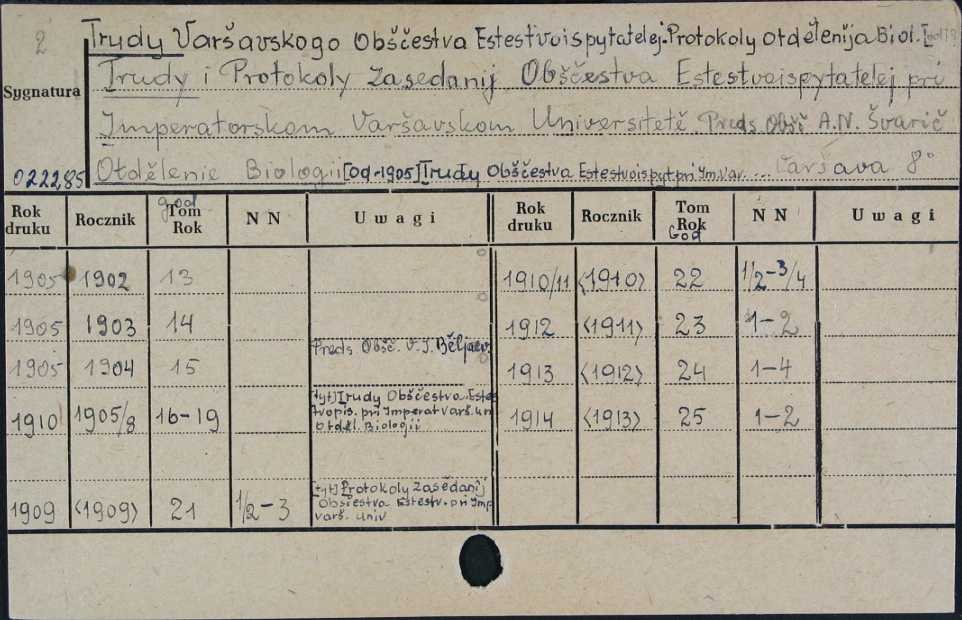 2
Trudy Varšavskogo Obščestva Estestvoispytatelej. Protokoly otdělenija Biol.
Trudy i Protokoly Zasedanij Obščestva Estestvoispytatelej pri
Sygnatura
Imperatorskom Varšavskom Universitetě. Preds. Obšč. A.N. Švarič
022285 Otdělenie Biologii [od-1905] Trudy Obščestva Estestvoispyt pri Im. Var. ... Varšava 8°
Rok druku Rocznik god Tom Rok NN Uwagi Rok druku Rocznik Tom Rok God NN Uwagi
1905 1902 13 1910/11 <1910> 22 1/2-3/4
1905 1903 14 1912 <1911> 23 1-2
Preds Obšč. V. I. Běljaev
1905 1904 15 1913 <1912> 24 1-4
[tyt] Trudy Obščestva Estes
tvopis. pri Imperat Varš. un
Otděl. Biologii
1910 1905/8 16-19 1914 <1913> 25 1-2
[tyt] Protokoly Zasědanij
Obščestva Estestv. pri Imp
Varš. Univ
1909 <1909> 21 1/2-3